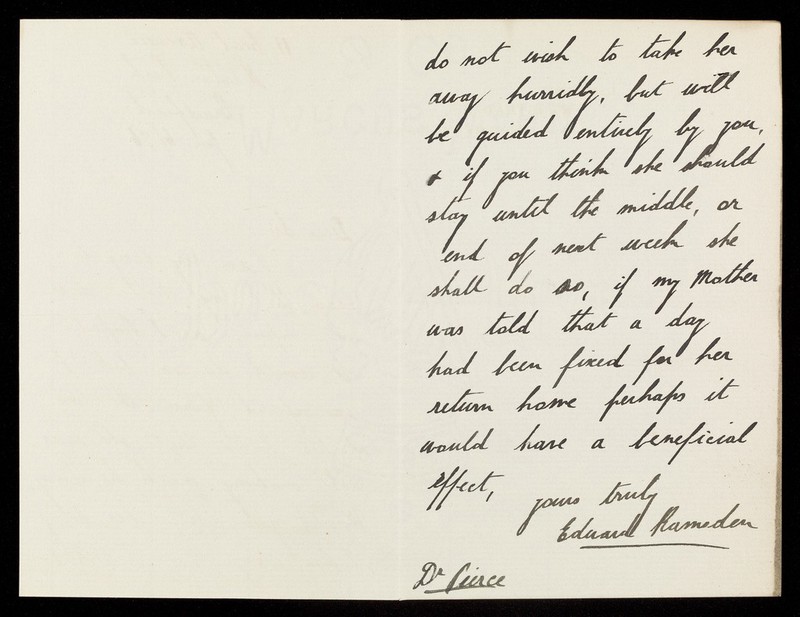 do not wish to take her
away hurridly, but will
be guided entirely by you,
& if you think she should
stay until the middle, or
end of next week she
shall do so, if my Mother
was told that a day
had been fixed for her
return home perhaps it
would have a beneficial
effect,
yours truly
Edward Ramsden
Dr Pierce